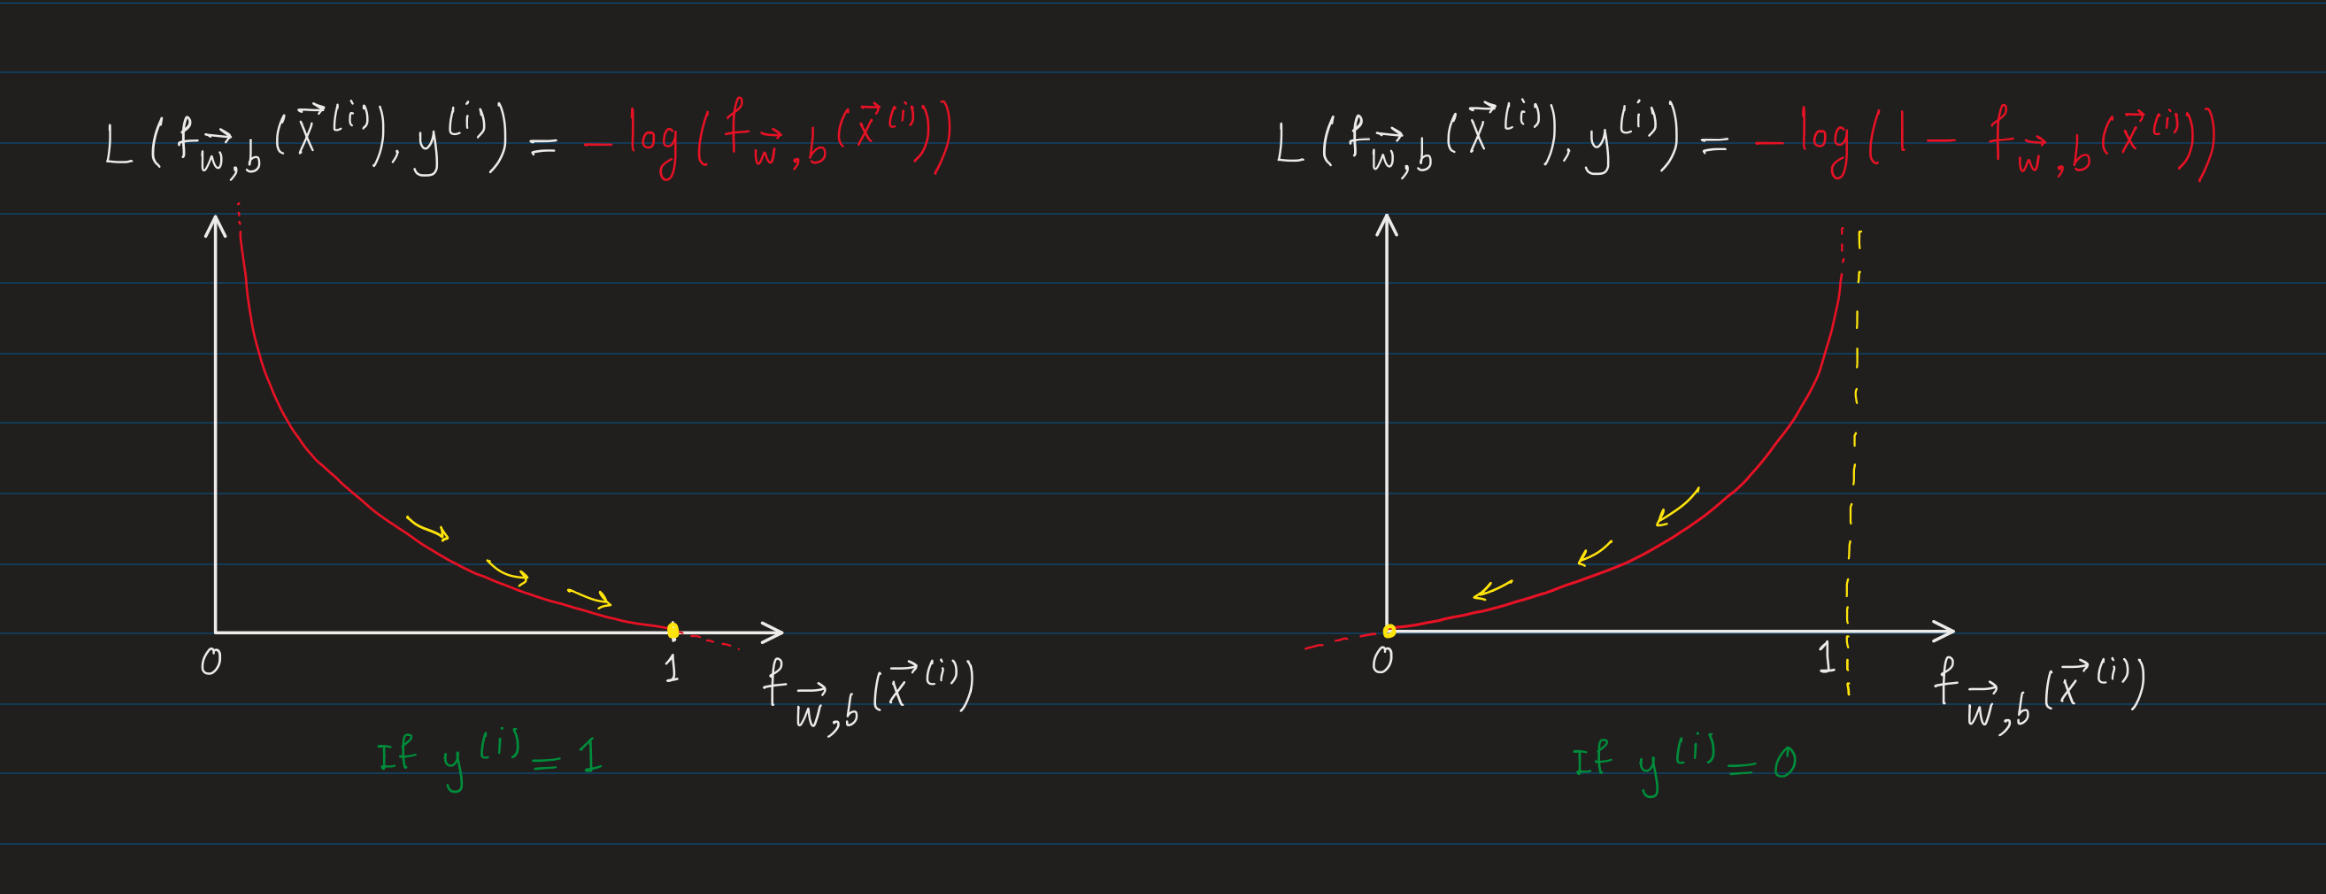 L(f_{\vec{w},b}(\vec{x}^{(i)}), y^{(i)}) = -log(f_{\vec{w},b}(\vec{x}^{(i)}))
0
1
f_{\vec{w},b}(\vec{x}^{(i)})
If y^{(i)} = 1
L(f_{\vec{w},b}(\vec{x}^{(i)}), y^{(i)}) = -log(1 - f_{\vec{w},b}(\vec{x}^{(i)}))
0
1
f_{\vec{w},b}(\vec{x}^{(i)})
If y^{(i)} = 0